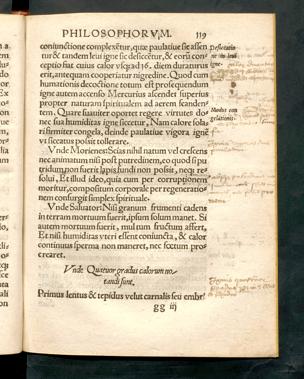 PHILOSOPHORVM. 119
coniunctione complexẽtur, quæ paulatiue sic assen
tur & tandem leui igne sic desiccẽtur, & eorũ con-
ceptio fiat cuius calor vsq; ad 36. diem duraturus
erit, antequam cooperiatur nigredine. Quod cum
humationis decoctione totum est prosequendum
igne autem accenso Mercurius ascendet superius
propter naturam spiritualem ad aerem scanden-
tem. Quare suauiter oportet regere virtutes do-
nec sua humiditas igne siccetur, Nam calore sola-
ri firmiter congela, deinde paulatiue vigora ignẽ
vt siccatus possit tollerare.
Vnde Morienes: Scias nihil natum vel crescens
nec animatum nisi post putredinem, eo quod si pu
tridum, non fuerit lapis fundi non possit, neq; re-
solui, Et illud ideo, quia cum per corruptionem
moritur, compositum corporale per regeneratio-
nem consurgit simplex spirituale.
Vnde Saluator: Nisi granum frumenti cadens
in terram mortuum fuerit, ipsum solum manet. Si
autem mortuum fuerit, multum fructum affert,
Et nisi humiditas vteri essent coniuncta, & calor
continuus sperma non maneret, nec fœtum pro-
crearet.
Vnde Quatuor gradus calorum no-
tandi sunt.
Primus lentus & tepidus velut carnalis seu embri
gg iij
Desiccatio
ne in leui
igne.
Modus con
gelationis.